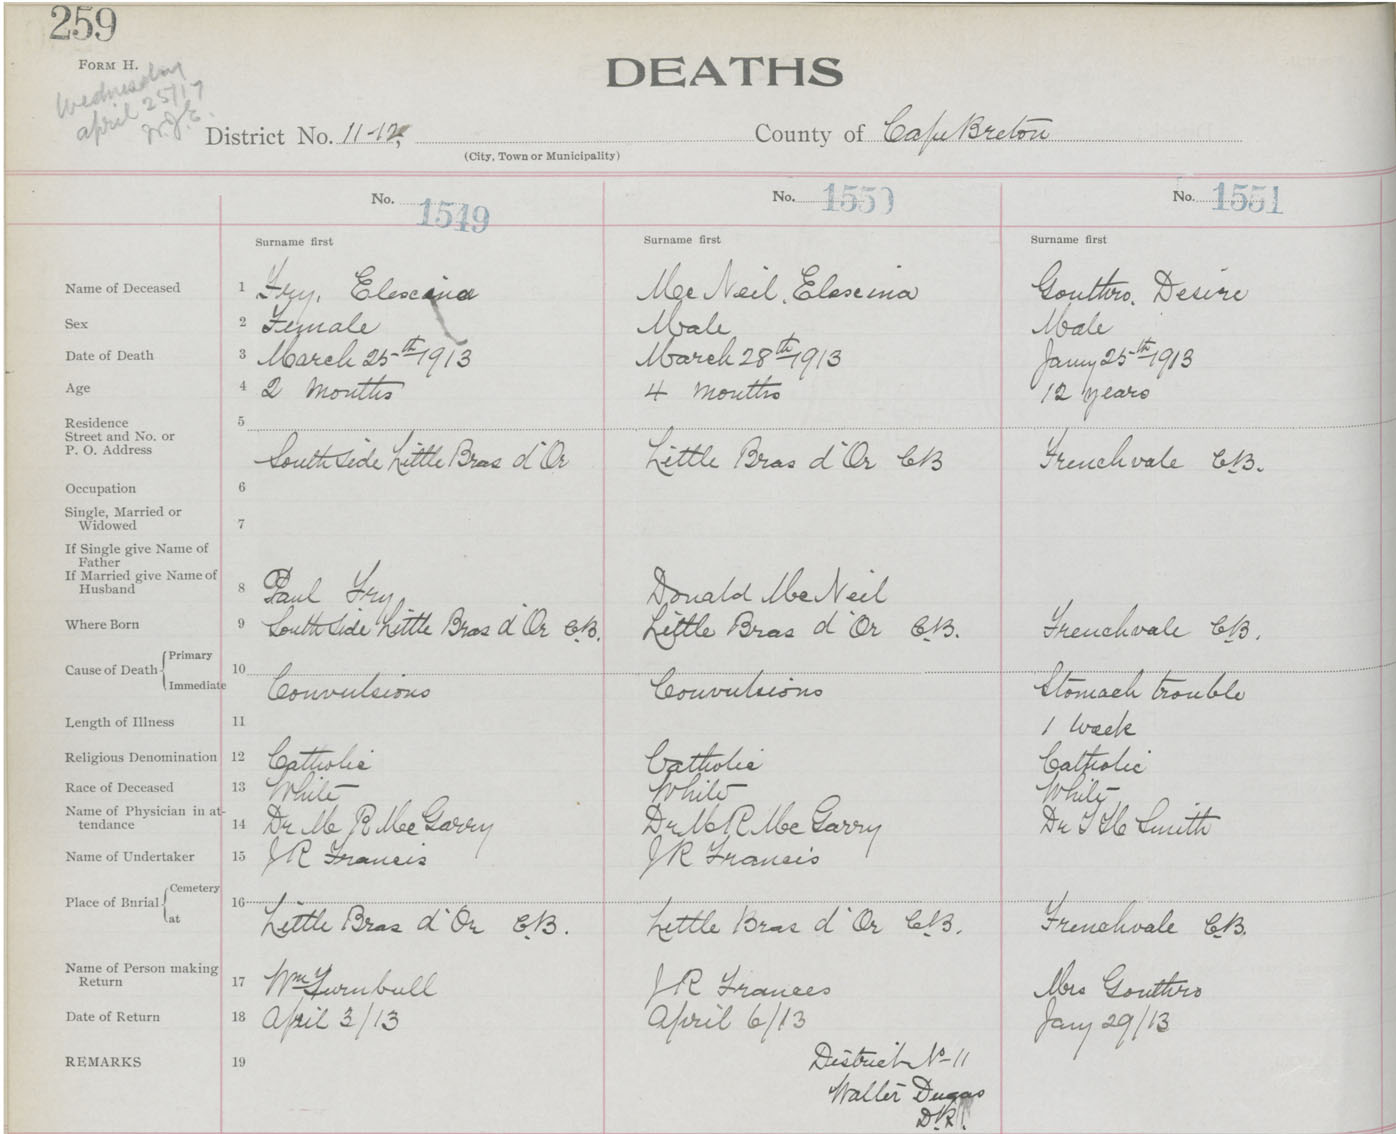 259
FORM H.
DEATHS
Wednesday
april 25/17
District No. 11-12, County of Cape Breton
(City, Town or Municipality)
No. 1549 No. 1550 No. 1551
Surname first Surname first Surname first
Name of Deceased 1 Fry, Elexcina Mc Neil, Elexcina Gouthro, Desire
Sex 2 Female Male Male
Date of Death 3 March 25th 1913 March 28th 1913 Jany 25th 1913
Age 4 2 Months 4 Months 12 years
Residence 5
Street and No. or
P. O. Address South Side Little Bras d'Or Little Bras d'Or C.B Frenchvale C.B.
Occupation 6
Single, Married or
Widowed 7
If Single give Name of
Father
If Married give Name of
Husband 8 Paul Fry Donald Mc Neil
Where Born 9 South Side Little Bras d'Or C.B. Little Bras d'Or C.B. Frenchvale C.B.
Cause of Death Primary 10
Immediate Convulsions Convulsions Stomach trouble
Length of Illness 11 1 week
Religious Denomination 12 Catholic Catholic Catholic
Race of Deceased 13 White White White
Name of Physician in at-
tendance 14 Dr M R Mc Garry Dr M R Mc Garry Dr Smith
Name of Undertaker 15 J R Francis J R Francis
Place of Burial Cemetery 16
at Little Bras d'Or C.B. Little Bras d'Or C.B. Frenchvale C.B.
Name of Person making
Return 17 Wm Turnbull J R Frances Mrs Gouthro
Date of Return 18 April 3/13 April 6/13 Jany 29/13
REMARKS 19 District No 11
Walter Dugas
D.R.